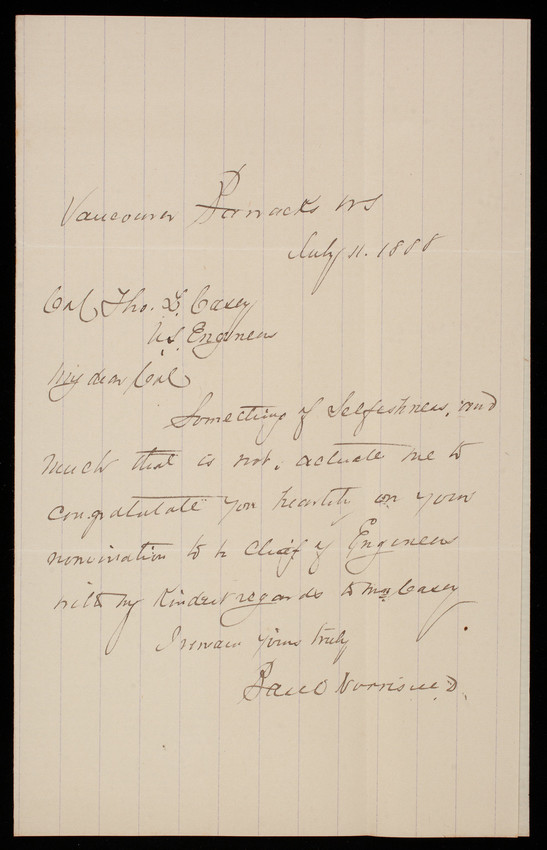 Vancouver Barracks WT
July 11. 1888
Col Tho. L. Casey
U.S. Engineers
My dear Col
Something of Selfishness, and
much that is not, actuate me to
congratulate you heartily on your
nomination to be Chief of Engineers
With my Kindest regards to Mrs Casey
I remain yours truly
Basil Norris M.D.